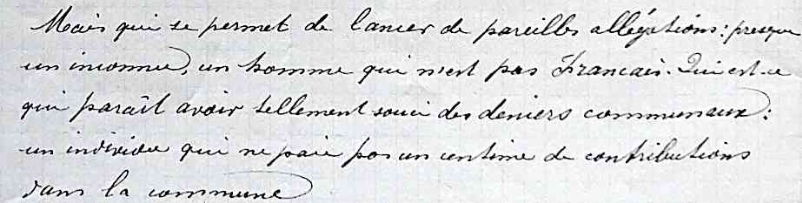 Mais qui se permet de lancer de pareilles allégations : presque
un inconnu, un homme qui n'est pas Francais. Qui est-ce
qui paraît avoir tellement souci des deniers communaux :
un individu qui ne paie pas un centime de contributions
dans la commune